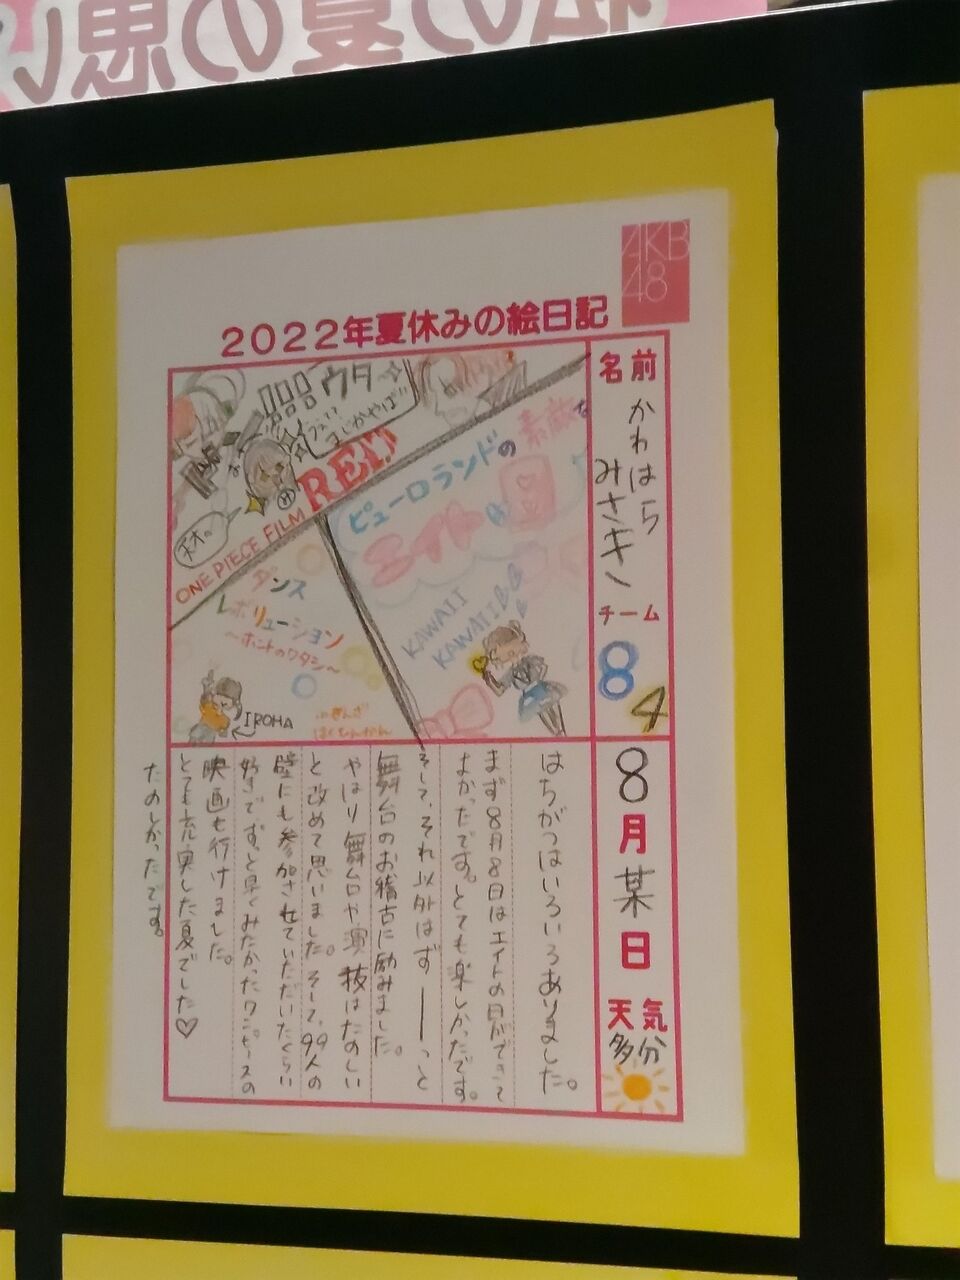 の夏の思い
AKB
48
2022年夏休みの絵日記
名前
かわはら
みさき
チーム
8
4
8月某日
天気
多分
ウタ
RED
ONE PIECE FILM
ピューロランドの素敵な
エイトの日
KAWAII
KAWAII
ダンス
レボリューション
〜ホントのワタシ〜
IROHA
はちがつはいろいろありました。
まず8月8日はエイトの日ができて
よかったです。とても楽しかったです。
そして、それ以外はずーーっと
舞台のお稽古に励みました。
やはり舞台や演技はたのしい
と改めて思いました。そして、99人の
壁にも参加させていただいたくらい
好きで、ずっと早くみたかったワンピースの
映画も行けました。
とても充実した夏でした♡
たのしかったです。